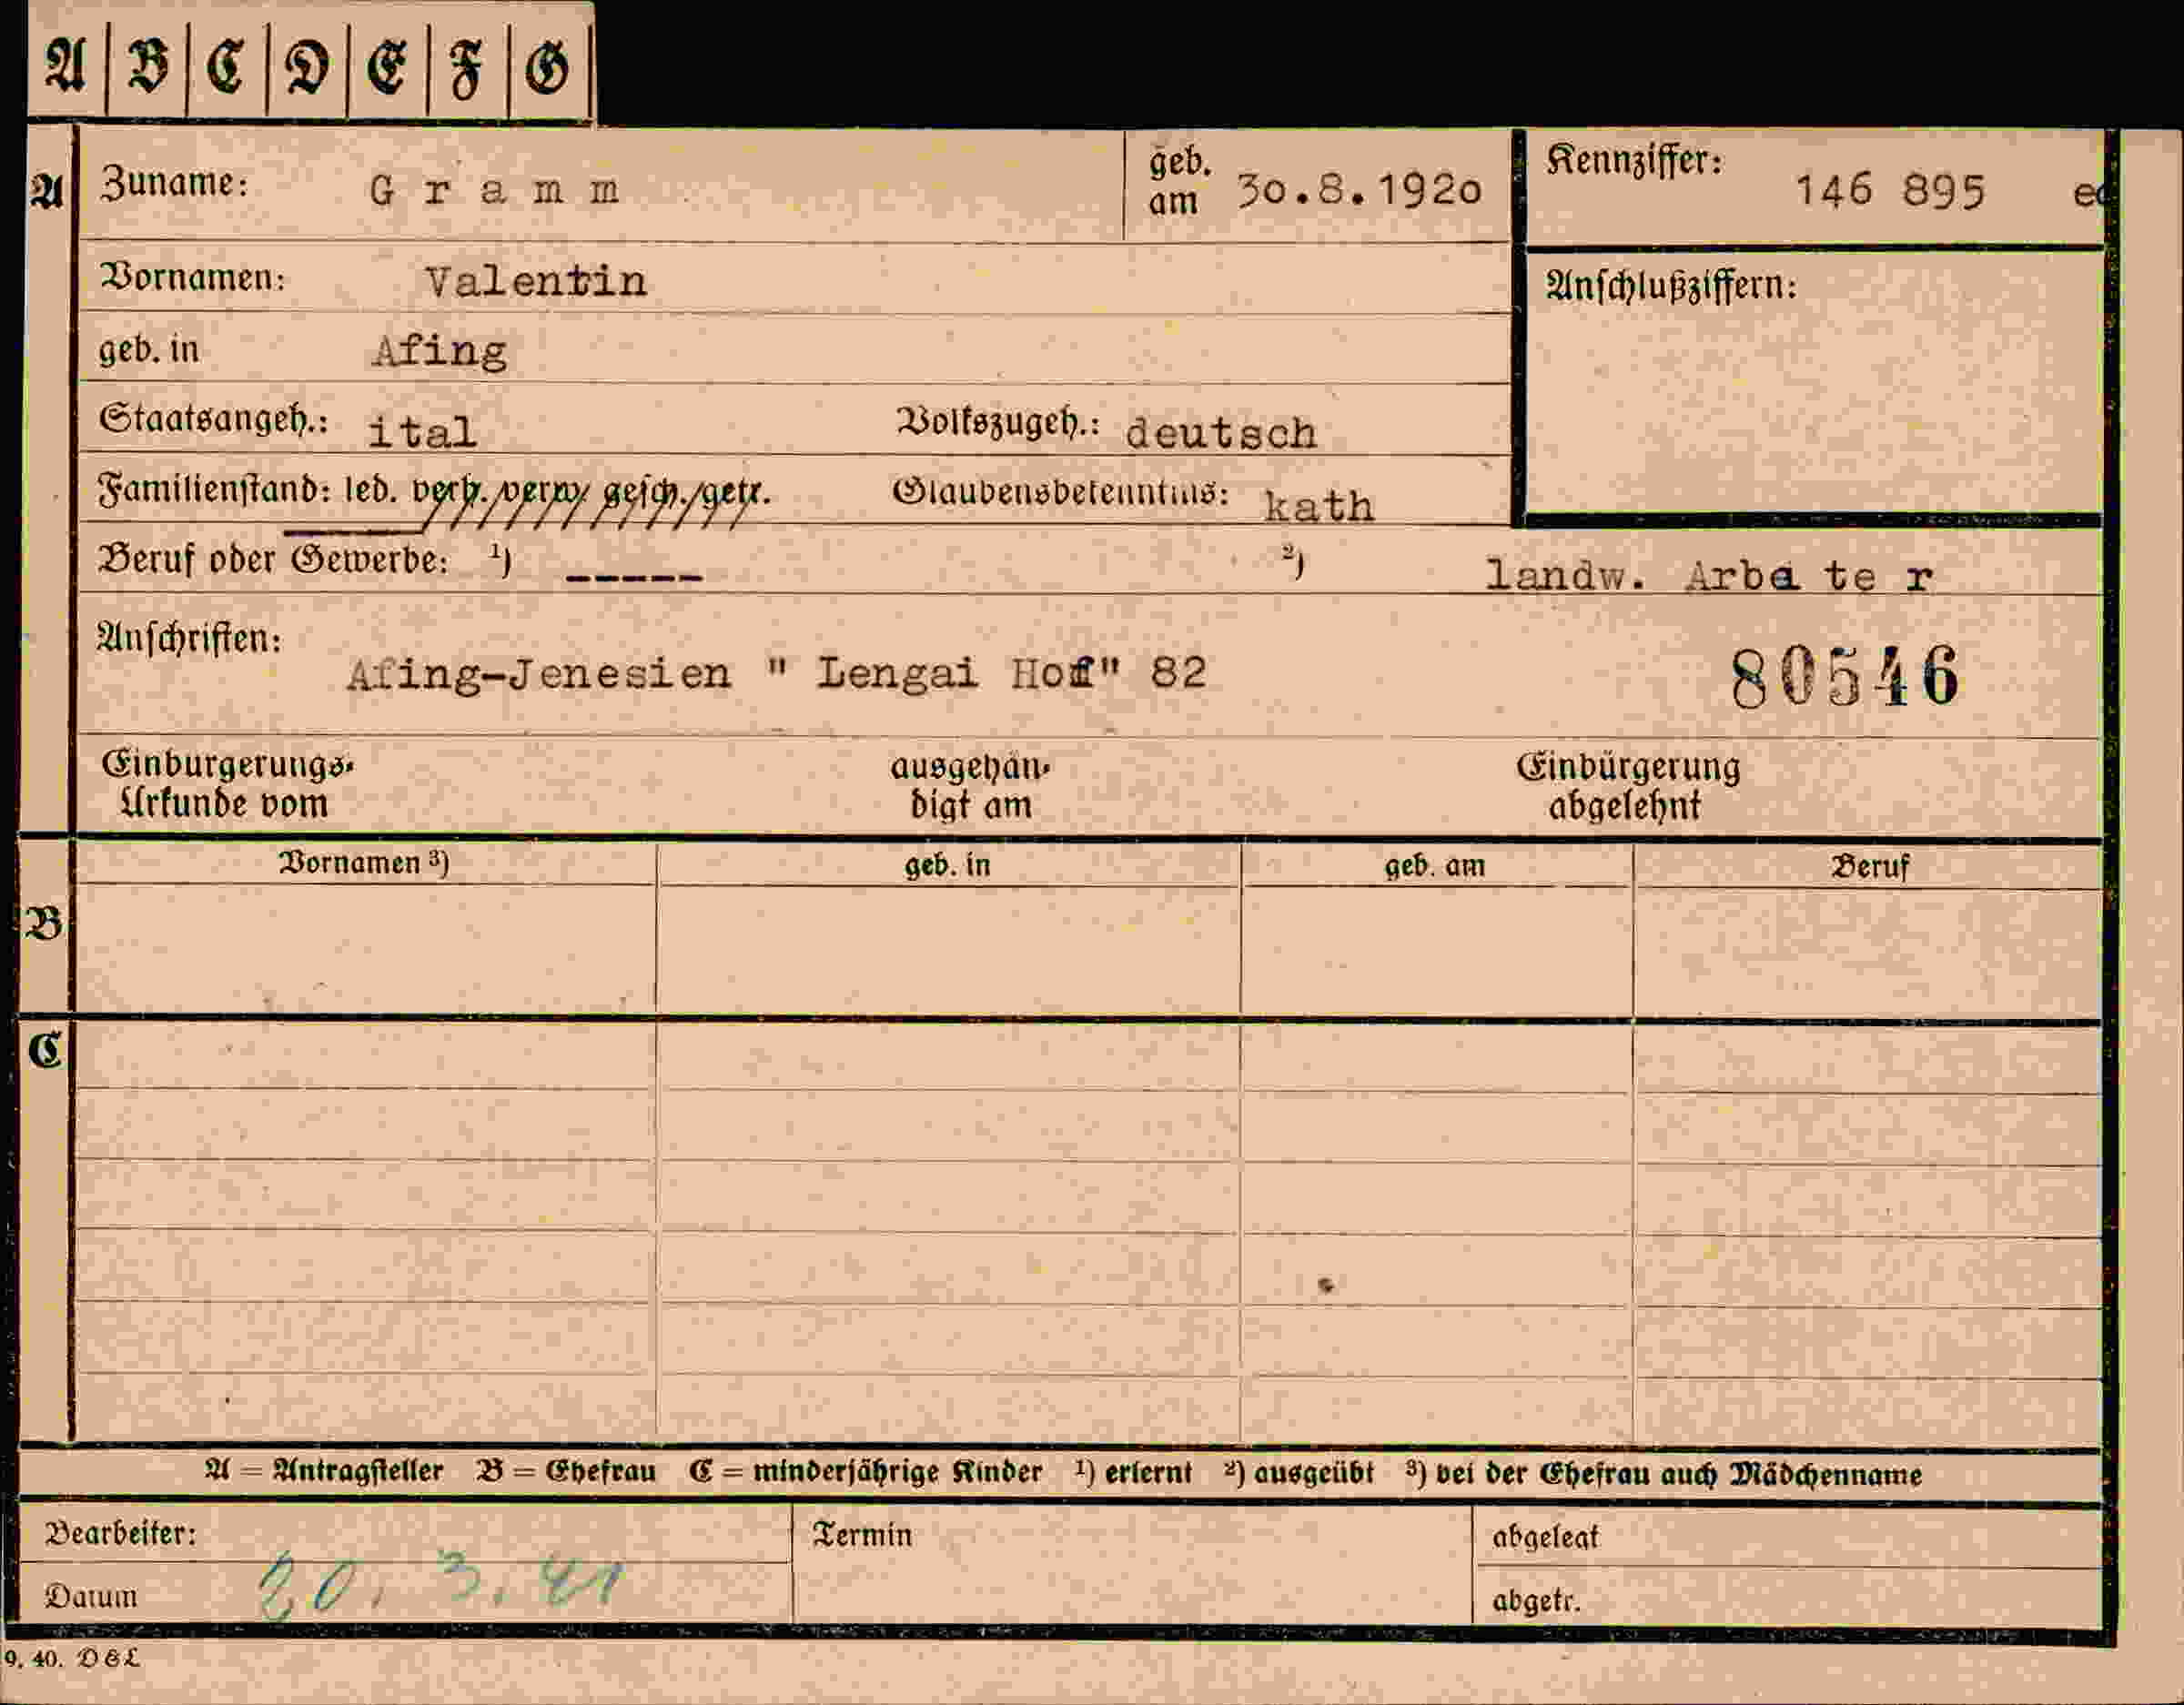 A B C D E F G
A Zuname: Gramm geb. am 30.8.1920 Kennziffer: 146 895
Vornamen: Valentin Anschlußziffern:
geb. in Afing
Staatsangeh.: ital Volkszugeh.: deutsch
Familienstand: led. verh./verw/ gesch./getr. Glaubensbekenntnis: kath
Beruf oder Gewerbe: ¹) ----- ²) landw. Arba te r
Anschriften:
Afing-Jenesien " Lengai Hof" 82 80546
Einbürgerungs- ausgehän- Einbürgerung
Urkunde vom digt am abgelehnt
Vornamen ³) geb. in geb. am Beruf
B
C
A = Antragsteller B = Ehefrau C = minderjährige Kinder ¹) erlernt ²) ausgeübt ³) bei der Ehefrau auch Mädchenname
Bearbeiter: Termin abgelegt
Datum 20. 3. 41 abgetr.
9. 40. DEL